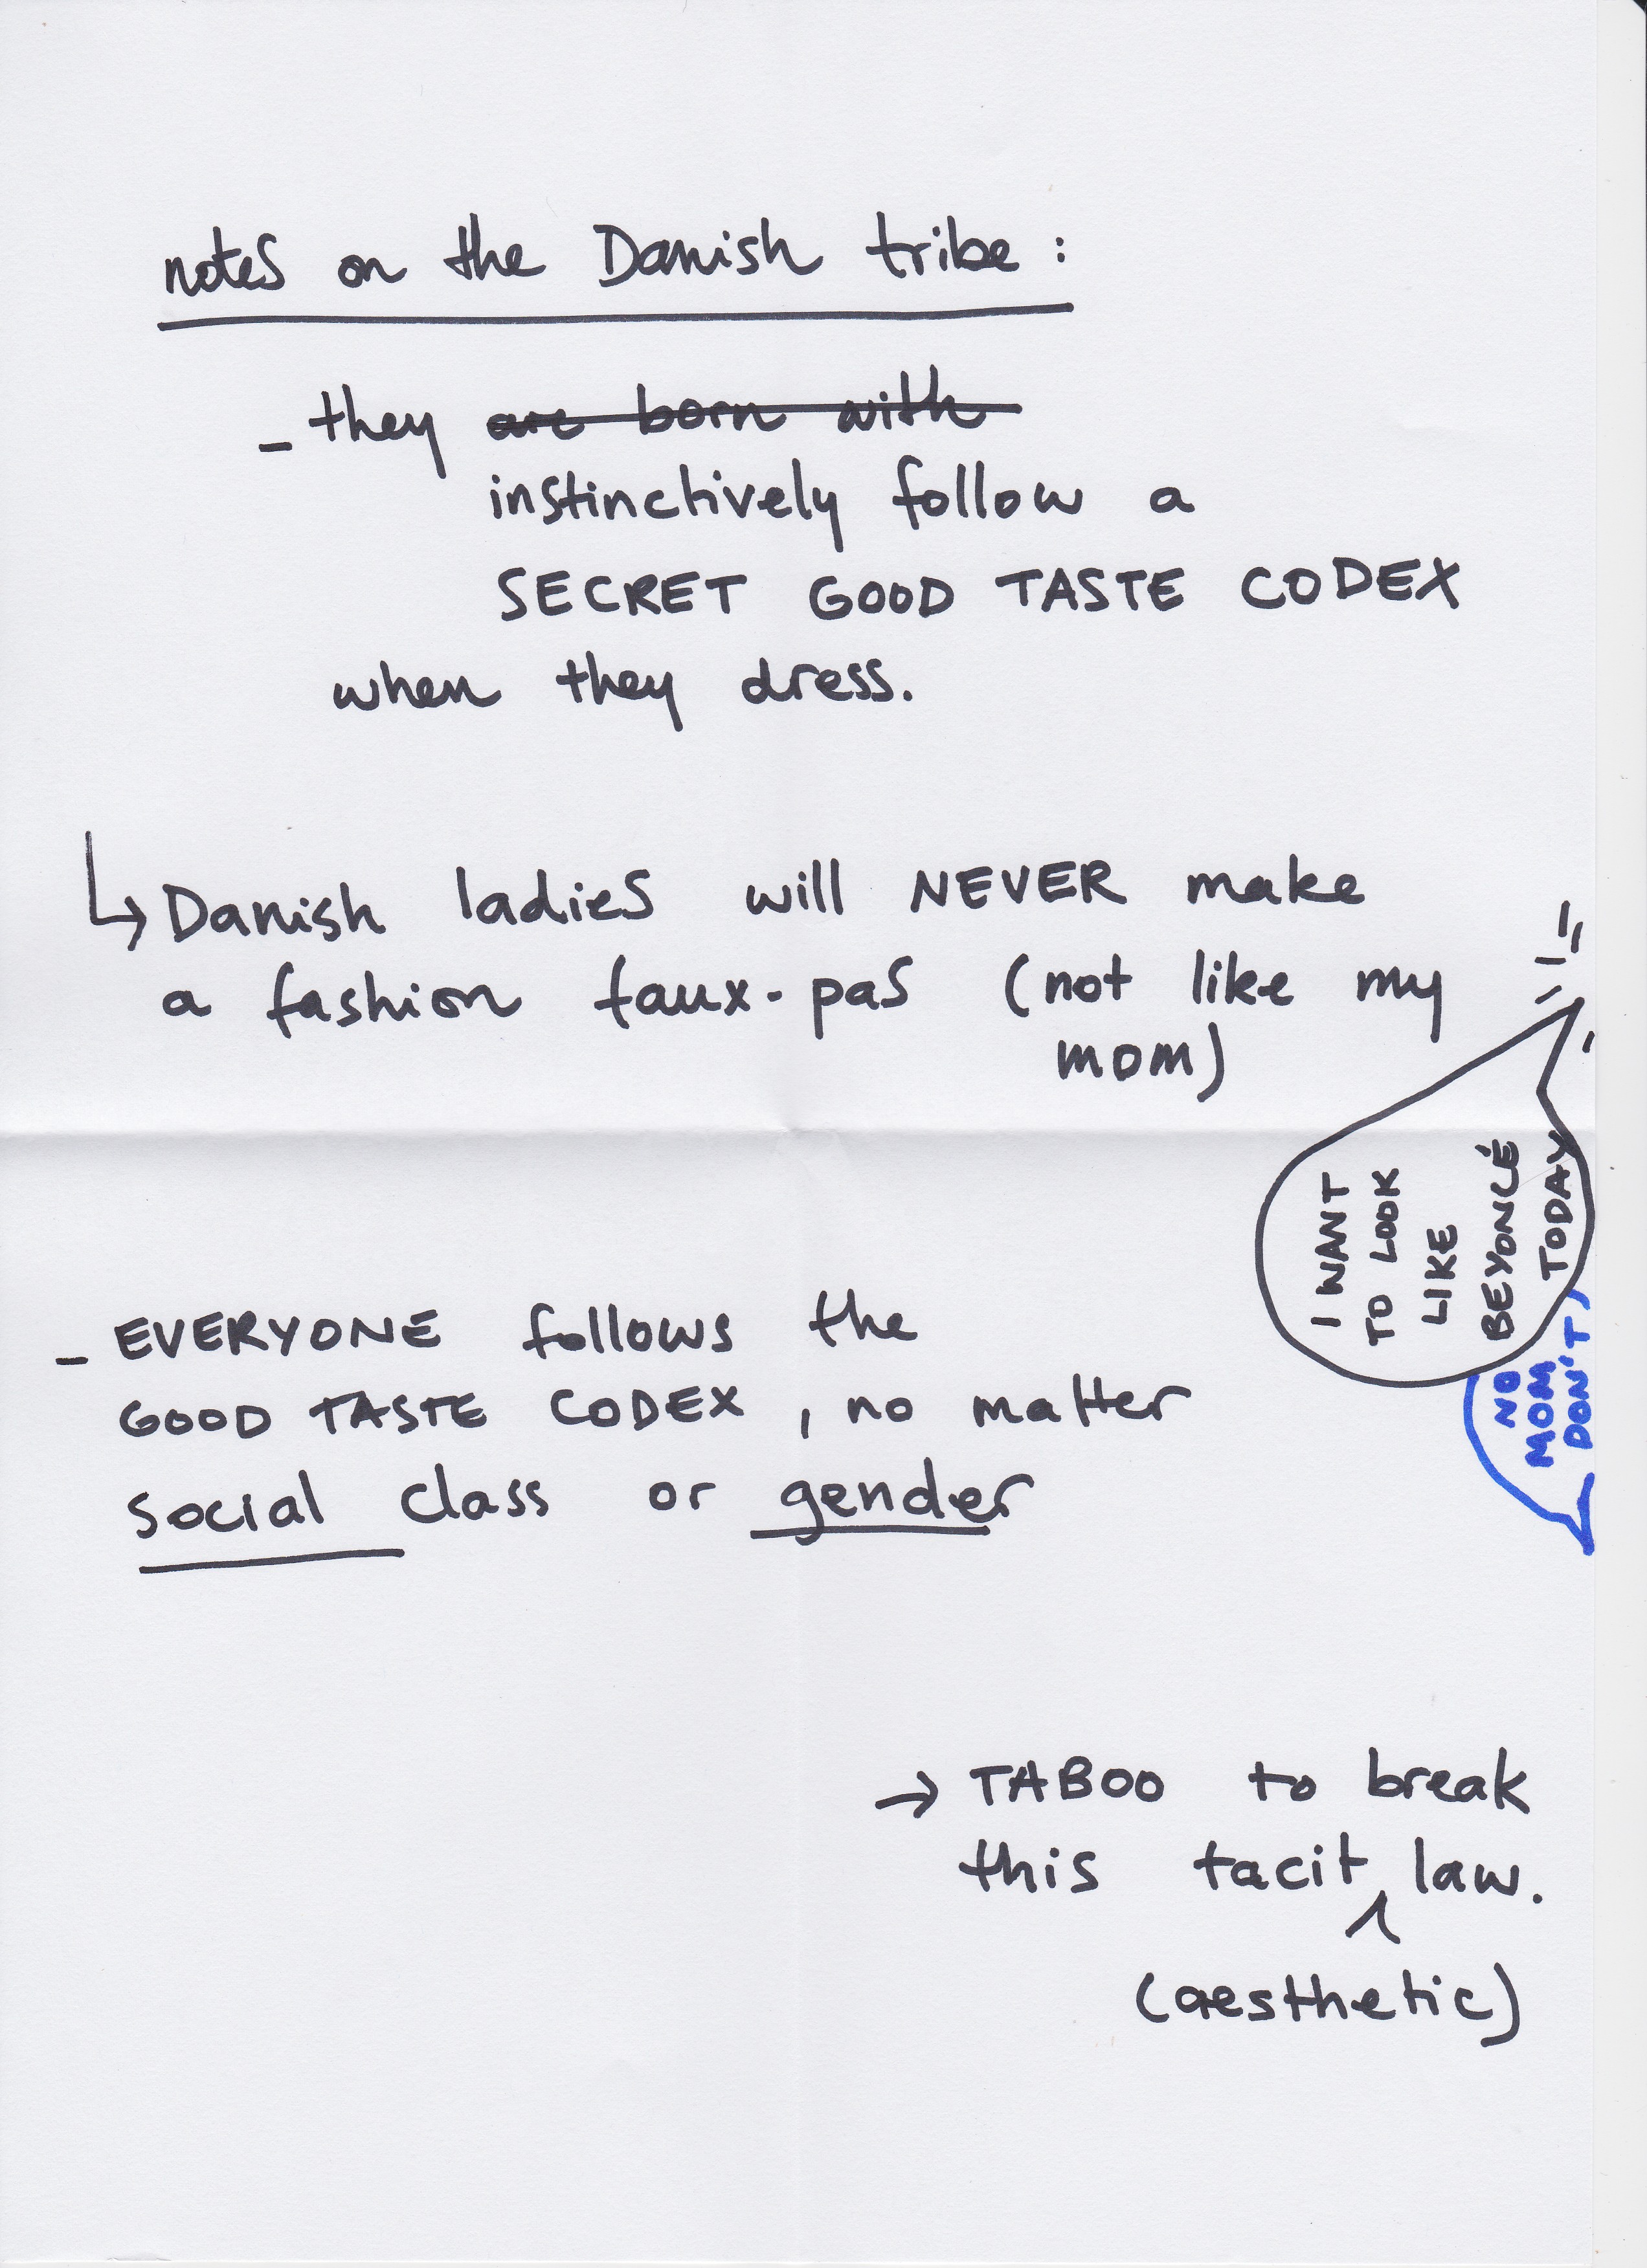 notes on the Danish tribe :
- they are born with
instinctively follow a
SECRET GOOD TASTE CODEX
when they dress.
↳ Danish ladies will NEVER make
a fashion faux-pas (not like my
mom)
I WANT
TO LOOK
LIKE
BEYONCÉ
TODAY
NO
MOM
DON'T)
- EVERYONE follows the
GOOD TASTE CODEX, no matter
social class or gender
→ TABOO to break
this tacit law.
(aesthetic)